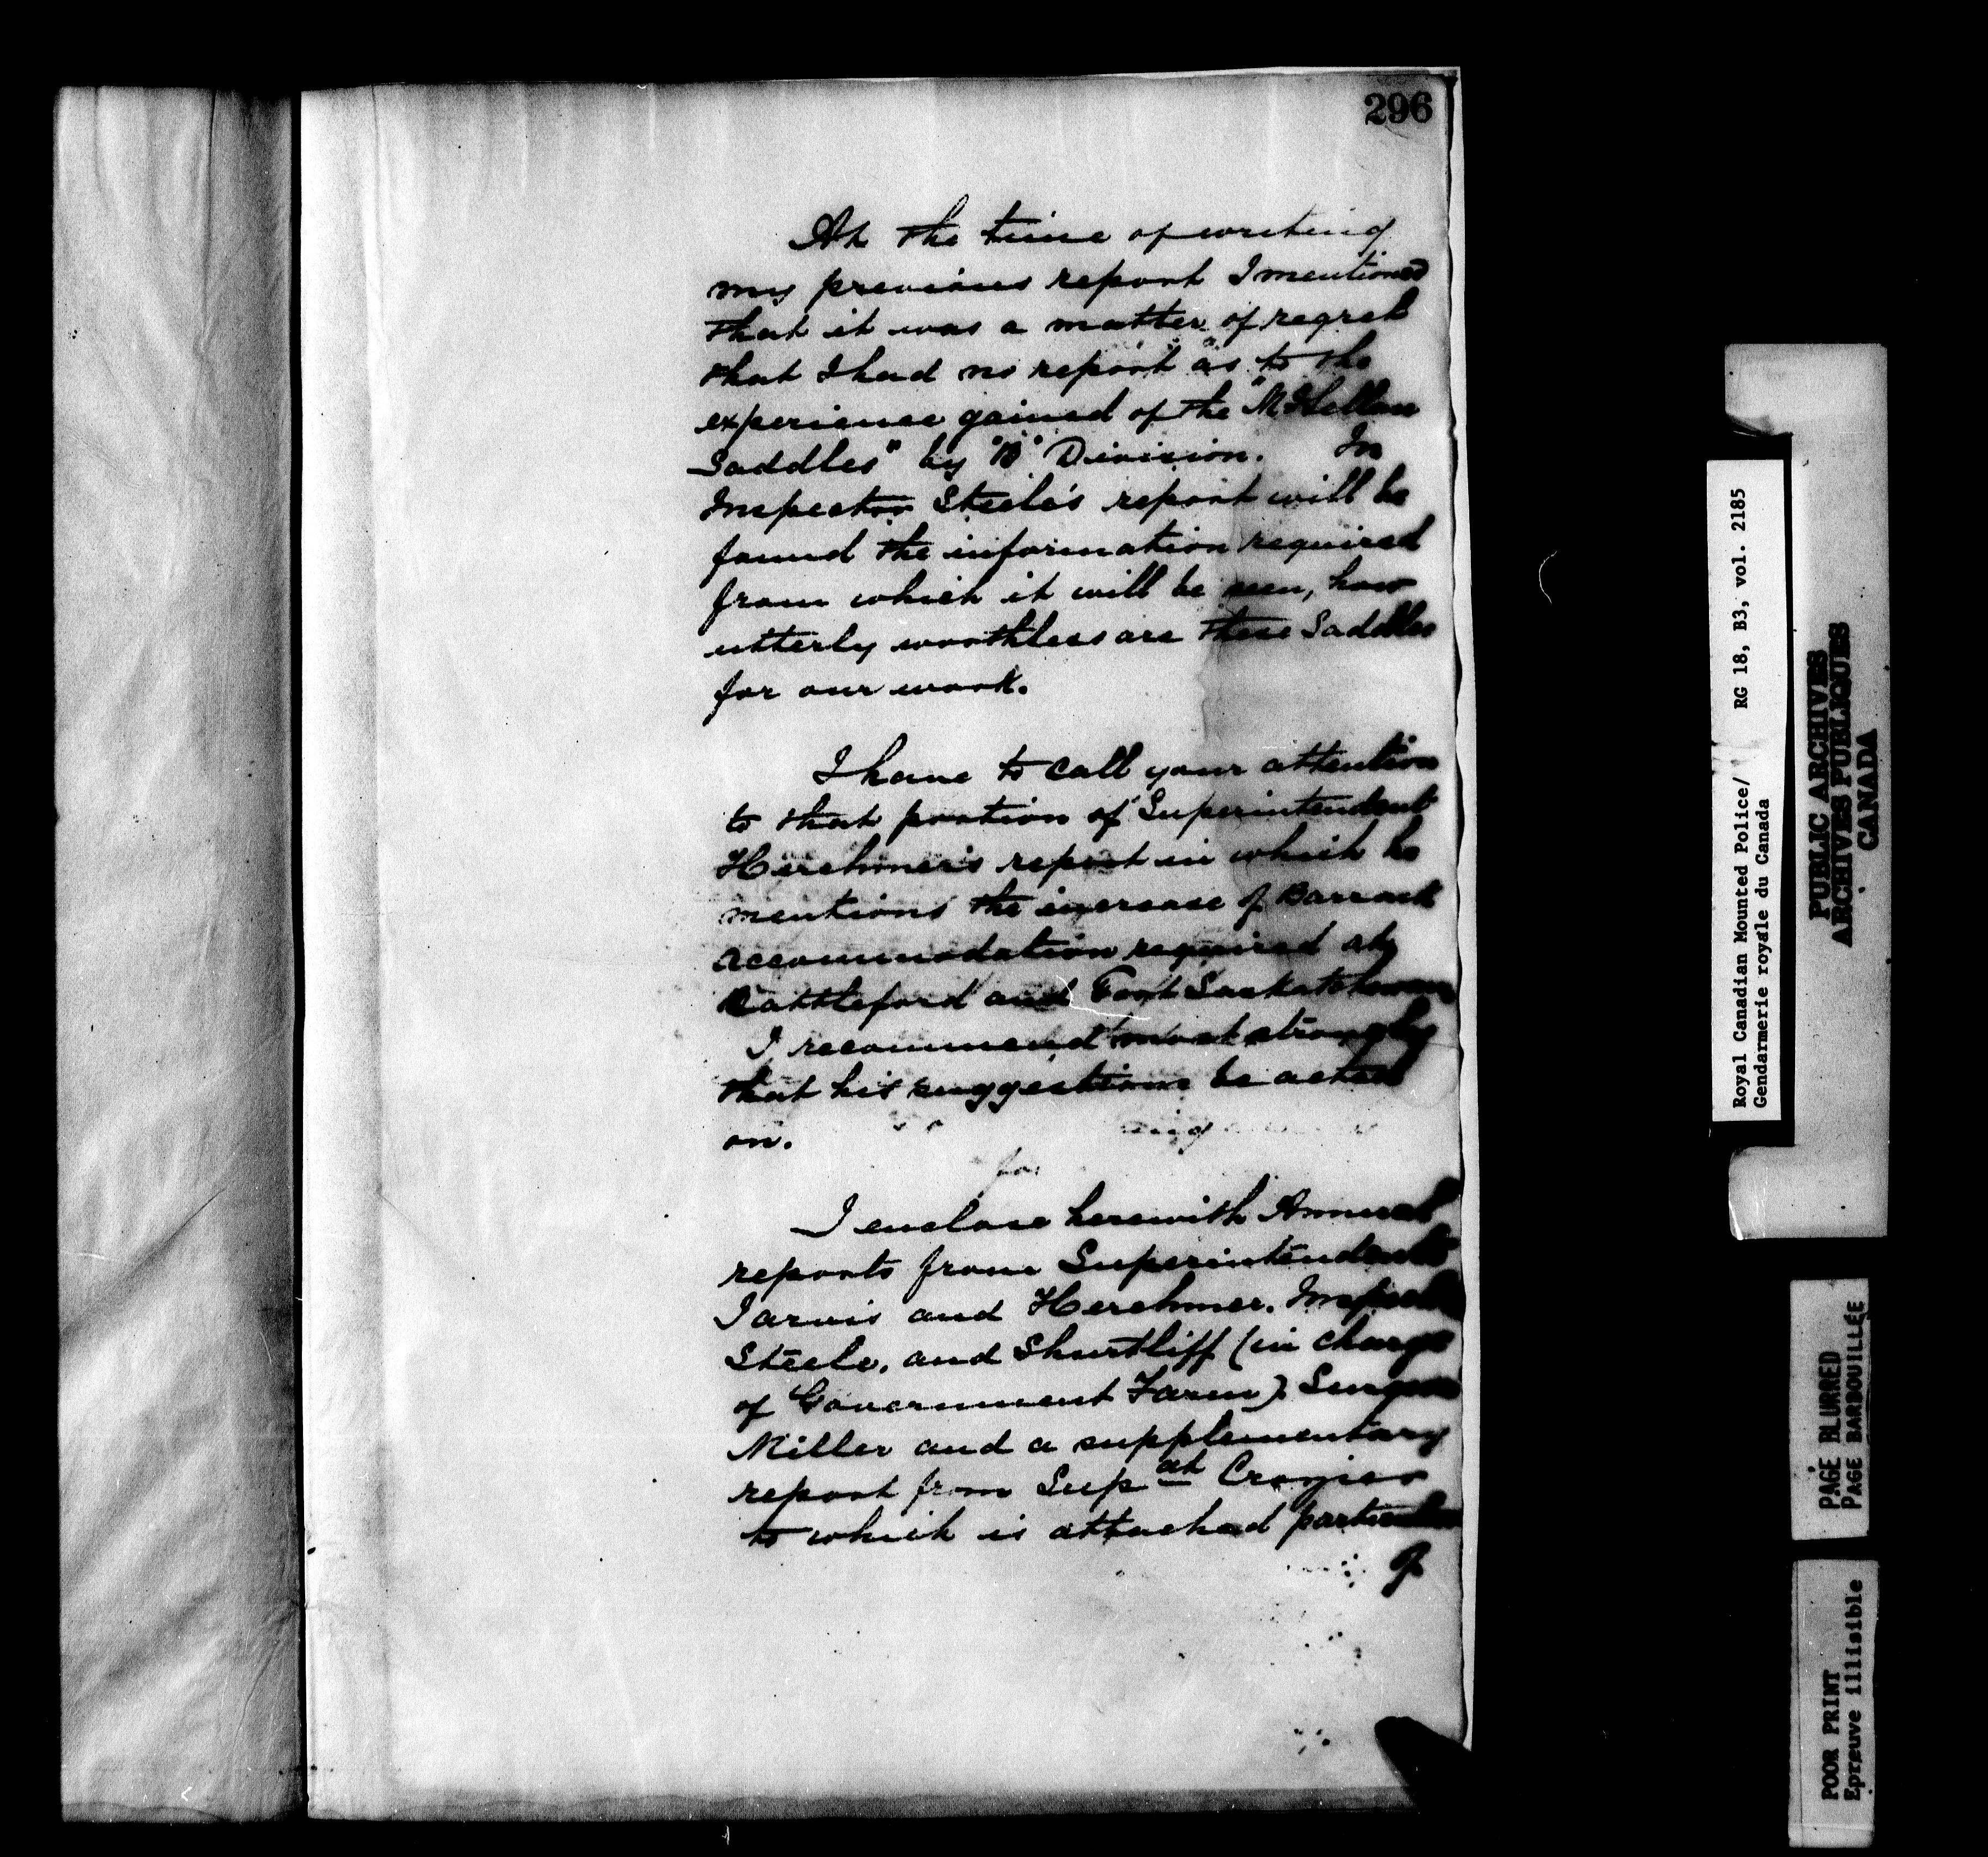 296
At the time of writing
my previous report I mentioned
that it was a matter of regret
that I had no report as to the
experience gained of the "McClellan
Saddles" by "B" Division. In
Inspector Steele's report will be
found the information required
from which it will be seen, how
utterly worthless are these Saddles
for our work.
I have to call your attention
to that portion of Superintendent
Herchmer's report in which he
mentions the increase of Barrack
accommodation required at
Battleford and Fort Saskatchewan
I recommend most strongly
that his suggestions be acted
on.
I enclose herewith Annual
reports from Superintendents
Jarvis and Herchmer. Inspectors
Steele, and Shurtliff (in charge
of Government Farm). Surgeon
Miller and a supplementary
report from Supdt Crozier
to which is attached particulars
of
Royal Canadian Mounted Police/ RG 18, B3, vol. 2185
Gendarmerie royale du Canada
PUBLIC ARCHIVES
ARCHIVES PUBLIQUES
CANADA
PAGE BLURRED
PAGE BARBOUILLÉE
POOR PRINT
Epreuve illisible